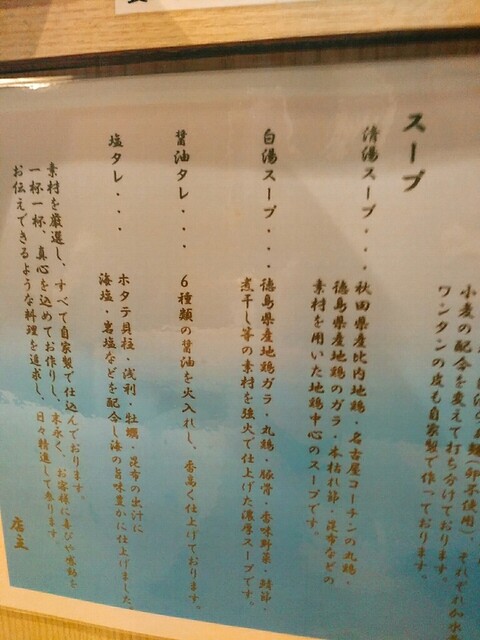 小麦の配合を変えて打ち分けております。
ワンタンの皮も自家製で作っております。
スープ
清湯スープ・・・秋田県産比内地鶏・名古屋コーチンの丸鶏・
徳島県産地鶏のガラ・本枯れ節・昆布などの
素材を用いた地鶏中心のスープです。
白湯スープ・・・徳島県産地鶏ガラ・丸鶏・豚骨・香味野菜・鯖節・
煮干し等の素材を強火で仕上げた濃厚スープです。
醤油タレ・・・6種類の醤油を火入れし、香高く仕上げております。
塩タレ・・・ホタテ貝柱・浅利・牡蠣・昆布の出汁に
海塩・岩塩などを配合し海の旨味豊かに仕上げました。
素材を厳選し、すべて自家製で仕込んでおります。
一杯一杯、真心を込めてお作りし、末永く、お客様に喜びや感動を
お伝えできるような料理を追求し、日々精進して参ります。
店主